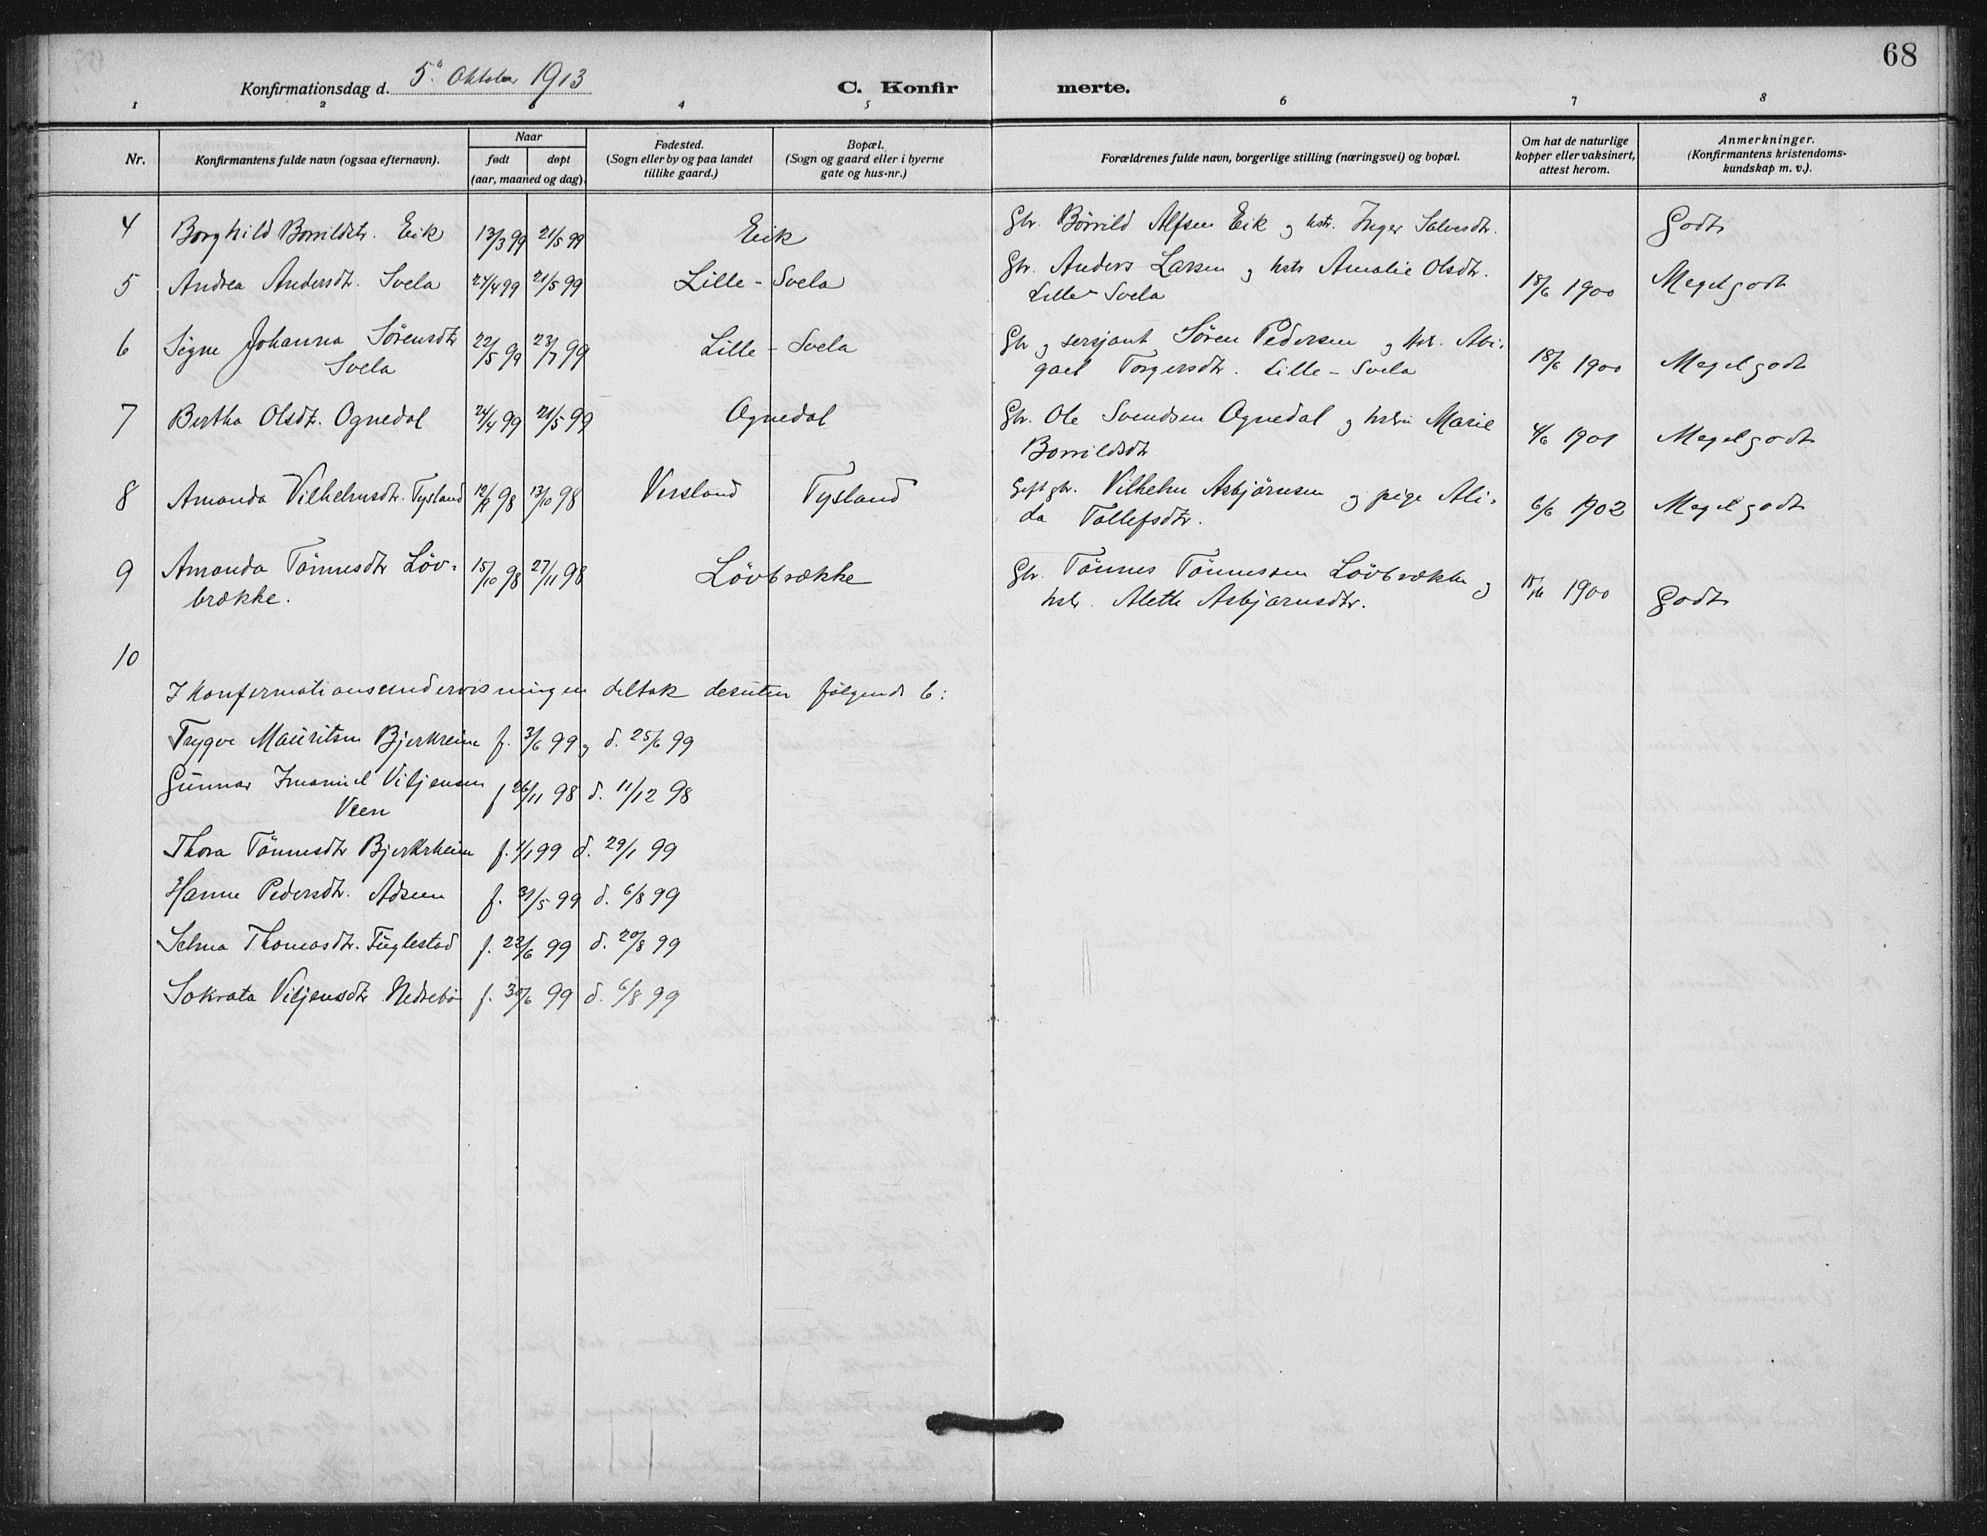 68
Konfirmationsdag d. 5. Oktober 1913 C. Konfirmerte.
1 2 3 4 5 6 7 8
Nr. Konfirmantens fulde navn (ogsaa efternavn). Naar født døpt (aar, maaned og dag). Fødested. (Sogn eller by og paa landet tillike gaard.) Bopæl. (Sogn og gaard eller i byerne gate og hus-nr.) Forældrenes fulde navn, borgerlige stilling (næringsvei) og bopæl. Om hat de naturlige kopper eller vaksinert, attest herom. Anmerkninger. (Konfirmantens kristendomskundskap m. v.).
4 Borghild Borrildsdtr. Eik 13/3 99 21/5 99 Eik Gbr. Börrild Alfsen Eik og hstr. Inger Salvesdtr. Godt
5 Andrea Andersdtr. Svela 24/4 99 21/5 99 Lille-Svela Gbr. Anders Larsen og hstr Amalie Olsdtr.
Lille Svela 18/6 1900 Meget godt
6 Signe Johanna Sörensdtr 22/5 99 23/7 99 Lille-Svela Gbr og sersjant Sören Pedersen og hstr. Abi-
Svela gael Torgersdtr. Lille-Svela 18/6 1900 Meget godt
7 Bertha Olsdtr. Ognedal 24/4 99 21/5 99 Ognedal Gbr. Ole Svendsen Ognedal og hstru Marie
Borrildsdtr 4/6 1901 Meget godt
8 Amanda Vilhelmsdtr. Tysland 98 13/10 98 Versland Tysland Gift gbr. Vilhelm Asbjörnsen og pige Ali-
da Tollefsdtr. 6/6 1902 Meget godt
9 Amanda Tönnesdtr Löv- 15/10 98 27/11 98 Lövbrække Gbr. Tönnes Tönnessen Lövbrække og
brække. hstr. Alette Asbjörnsdtr. 1900 Godt
10
I konfirmationsundervisningen deltok desuten følgende 6:
Trygve Mauritsen Bjerkreim f. 3/6 99, d. 25/6 99
Gunnar Imanuel Viljensen
Veen f 26/11 98 d. 11/12 98
Thora Tönnesdtr Bjerkreim f. 1/1 99 d. 29/1 99
Hanne Pedersdtr. Adseen f. 31/5 99 d. 6/8 99
Selma Thomasdtr. Fuglestad f. 22/6 99 d. 20/8 99
Sokrata Viljensdtr Nedrebö f. 30/6 99 d. 6/8 99